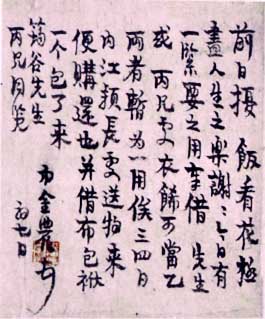 前日擾飯看花極
盡人生之樂謝〻乙日有
一緊要之用幸借先生
或丙兄處衣飾可當乙
兩者暫為一用俟三四日
內江穎長處送物來
便購還也并借布包袱
一个包了来
筠谷先生
丙兄同覽
弟金農頓首
初七日